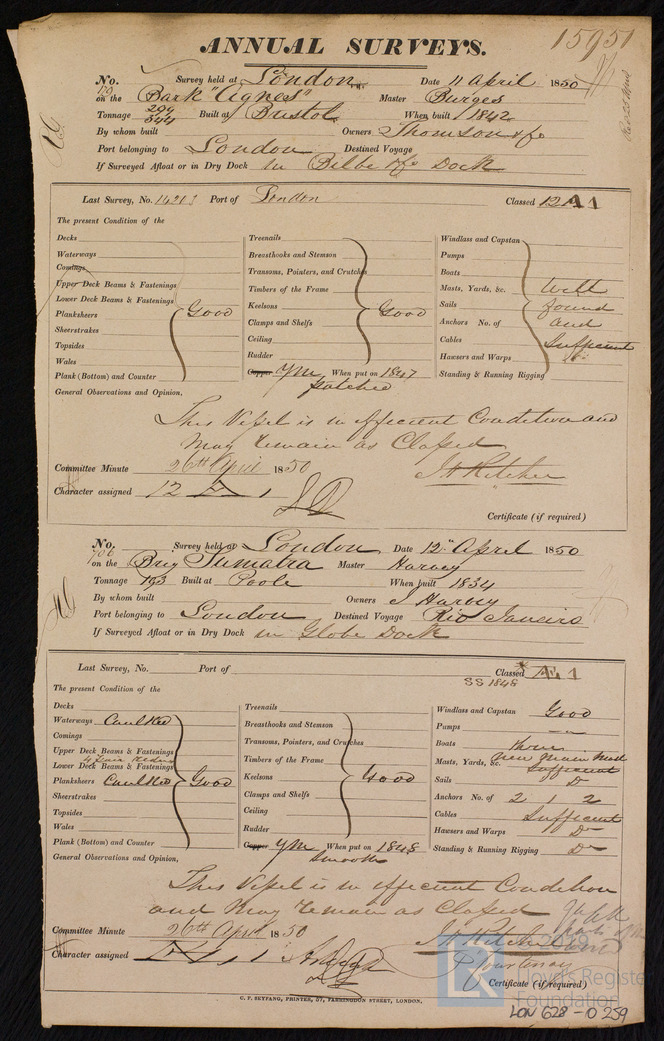 15951
ANNUAL SURVEYS.
No. 170 Survey held at London Date 11 April 1850
on the Bark "Agnes" Master Burges
Tonnage 299 344 Built at Bristol When built 1842
By whom built Owners Thomson & Co
Port belonging to London Destined Voyage
If Surveyed Afloat or in Dry Dock in Bilbe & Co Dock
Last Survey, No. Port of London Classed 12 A 1
The present Condition of the
Decks
Waterways
Comings
Upper Deck Beams & Fastenings
Lower Deck Beams & Fastenings
Planksheers Good
Sheerstrakes
Topsides
Wales
Plank (Bottom) and Counter
Treenails
Breasthooks and Stemson
Transoms, Pointers, and Crutches
Timbers of the Frame
Keelsons Good
Clamps and Shelfs
Ceiling
Rudder
Copper YM When put on 1847
patched
Windlass and Capstan
Pumps
Boats
Masts, Yards, &c. Well
Sails found
Anchors No. of and
Cables Sufficient
Hawsers and Warps
Standing & Running Rigging
General Observations and Opinion,
This Vessel is in efficient Condition and
May remain as Classed
Committee Minute 26th April 1850
J H Ritchie
Character assigned 12 A 1
Certificate (if required)
No. 706 Survey held at London Date 12th April 1850
on the Brig Sumatra Master Harvey
Tonnage 193 Built at Poole When built 1834
By whom built Owners J Harvey
Port belonging to London Destined Voyage Rio Janeiro
If Surveyed Afloat or in Dry Dock in Globe Dock
Last Survey, No. Port of Classed A 1
SS 1848
The present Condition of the
Decks
Waterways Caulked
Comings
Upper Deck Beams & Fastenings
Lower Deck Beams & Fastenings
Planksheers Caulked Good
Sheerstrakes
Topsides
Wales
Plank (Bottom) and Counter
Treenails
Breasthooks and Stemson
Transoms, Pointers, and Crutches
Timbers of the Frame
Keelsons Good
Clamps and Shelfs
Ceiling
Rudder
Copper YM When put on 1848
Smooth
Windlass and Capstan Good
Pumps
Boats three
Masts, Yards, &c. new Main Mast
Sufficient
Sails Do
Anchors No. of 2 1 2
Cables Sufficient
Hawsers and Warps Do
Standing & Running Rigging Do
General Observations and Opinion,
This Vessel is in efficient Condition
and May remain as Classed
Committee Minute 26th April 1850
J H Ritchie
Character assigned A 1
P Courtenay
Certificate (if required)
C. F. SEYFANG, PRINTER, 57, FARRINGDON STREET, LONDON.
2019
LR
Lloyd's Register
Foundation
LON 628-10259